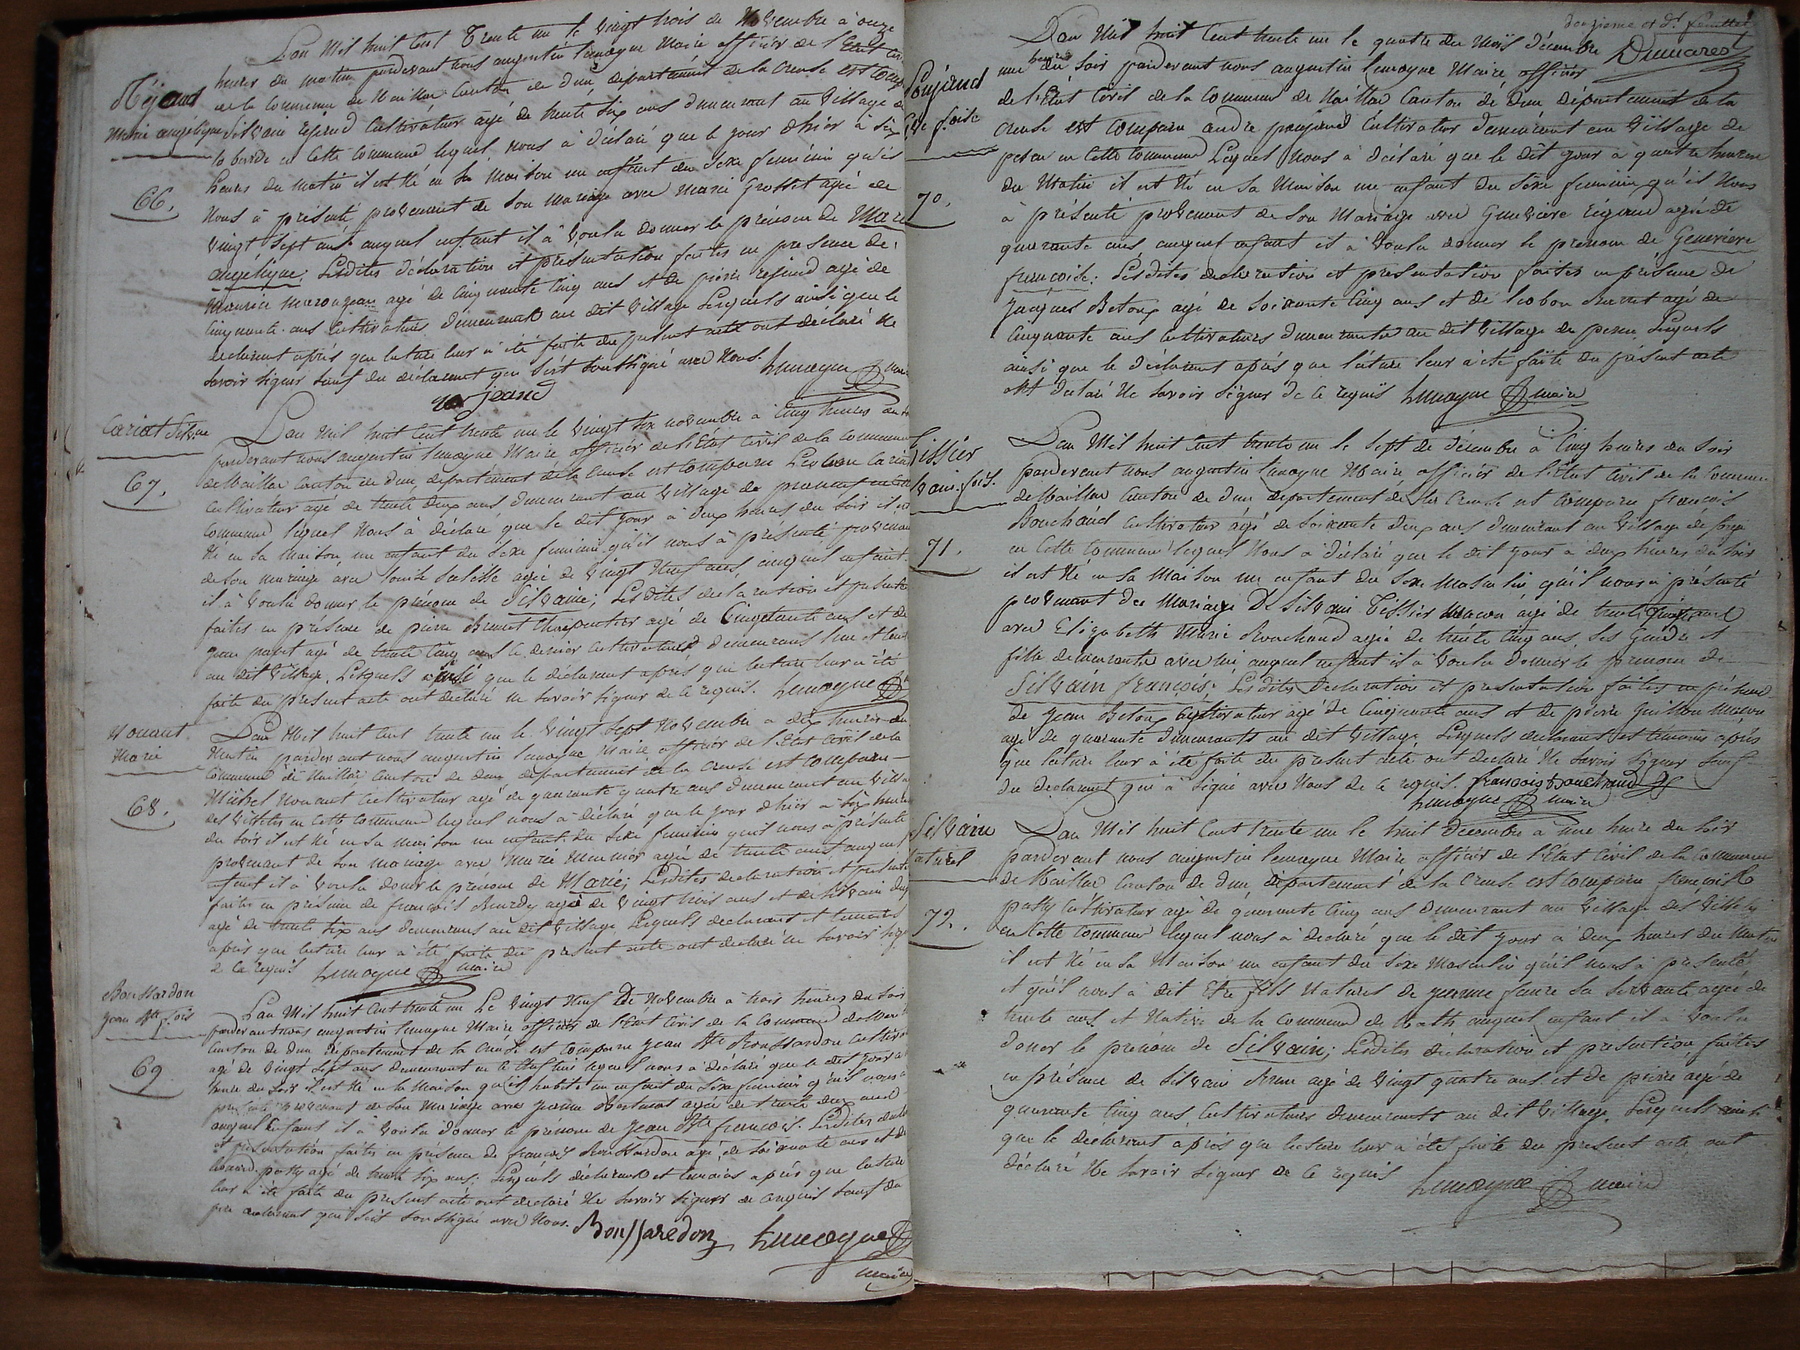 L'an Mil huit Cent Trente un le vingt trois de Novembre à onze
heures du matin pardevant nous augustin Lemoyne Maire officier de l'Etat civil
de la Commune de Naillat Canton de dun, département de la Creuse est Comparu
Réjeaud
Marie angélique
Silvain rejeaud Cultivateur agé de trente six ans demeurant au Village de
la borde en Cette Commune lequel nous à déclaré que le jour d'hier à six
heures du matin il est Né en sa maison un enfant du Sexe féminin qu'il
66.
Nous à présenté provenant de son mariage avec Marie Grosset agée de
vingt Sept ans auquel enfant il à voulu donner le prénom de Marie
angélique; Lesdites déclaration et présentation faites en presence de
Maurice agé de Cinquante Cinq ans et de pierre rejeaud agé de
Cinquante ans Cultivateurs demeurants au dit Village Lesquels ainsi que le
déclarant après que lecture leur à été faite du présent acte ont déclaré Ne
Savoir Signer Sauf du déclarant qui s'est Soussigné avec Nous. Lemoyne maire
rejeaud
Cariat Silvine
L'an Mil huit Cent trente un le vingt six novembre à Cinq heures du soir
pardevant nous augustin Lemoyne Maire officier de l'Etat Civil de la Commune
de Naillat Canton de dun, departement de la Creuse est Comparu Leobon Cariat
67.
Cultivateur agé de trente deux ans demeurant au Village de
Commune lequel Nous à déclaré que le dit jour à deux heures du Soir il est
Né en sa Maison, un enfant du Sexe féminin qu'il nous à présenté provenant
de son mariage avec agée de vingt Neuf ans, auquel enfant
il à voulu donner le prénom de Silvaine; Lesdites declaration et présentation
faites en présence de pierre Brunet Charpentier agé de Cinquante ans et de
jean agé de trente Cinq ans le dernier Cultivateur demeurants
au dit Village, Lesquels ainsi que le déclarant après que lecture leur à été
faite du présent acte ont déclaré ne Savoir Signer de ce requis. Lemoyne
Nouant
Marie
L'an Mil huit Cent trente un le vingt Sept Novembre à dix heures du
Matin pardevant nous augustin Lemoyne Maire officier de l'Etat Civil de la
Commune de Naillat Canton de dun, departement de la Creuse est Comparu
68.
Michel Nouant Cultivateur agé de quarante quatre ans demeurant au Village
des en Cette Commune lequel nous à déclaré que le jour d'hier à six heures
du soir il est Né en sa maison un enfant du Sexe féminin qu'il nous à présenté
provenant de son mariage avec Marie agée de trente ans, auquel
enfant il à voulu donner le prénom de Marie; Lesdites declaration et présentation
faites en présence de françois Bourdes agé de vingt trois ans et de Silvain
agé de trente six ans demeurans au dit village, Lesquels déclarant et temoins
après que lecture leur à été faite du présent acte ont déclaré ne Savoir Signer
de ce requis Lemoyne maire
Boussardon
jean Bte fois
L'an Mil huit Cent trente un Le vingt Neuf De Novembre à trois heures du Soir
pardevant nous augustin Lemoyne Maire officier de l'Etat Civil de la Commune de Naillat
Canton de dun, département de la Creuse est Comparu jean Bte Boussardon Cultivateur
69
agé de vingt Sept ans demeurant lequel nous à déclaré que le dit jour à
heure du Soir il est Né en la Maison qu'il habite un enfant du Sexe féminin qu'il nous à
présenté provenant de son Mariage avec jeanne agée de trente deux ans
auquel Enfant il à voulu donner le prénom de jean Bte françois. Lesdites déclaration
et présentation faites en présence de françois Boussardon agé de soixante ans et de
agé de trente six ans. Lesquels déclarant et temoins après que lecture
leur à été faite du présent acte ont déclaré Ne Savoir Signer de Ce requis Sauf du
declarant qui s'est Soussigné avec Nous. Boussaredon Lemoyne
maire
douzieme et dr feuillet
Dumarest
L'an Mil huit Cent trente un le quatre du Mois Décembre
une heure du Soir pardevant nous augustin Lemoyne Maire officier
Poujeaud
Gve foise
de l'Etat Civil de la Commune de Naillat Canton de dun département de la
Creuse est Comparu andré poujeaud Cultivateur demeurant au Village de
peseu en Cette Commune Lequel Nous à déclaré que le dit jour à quatre heures
du Matin il est Né en sa Maison un enfant du Sexe féminin qu'il Nous
70.
à présenté provenant de son Mariage avec Genevieve agée de
quarante ans auquel enfant il à voulu donner le prenom de Genevieve
françoise. Lesdites declaration et presentation faites en présence de
Jacques Betoux agé de soixante Cinq ans et de Leobon agé de
Cinquante ans Cultivateurs demeurants au dit Village de peseu, Lesquels
ainsi que le déclarant après que lecture leur à été faite du présent acte
ont declaré Ne savoir Signer de Ce requis Lemoyne maire
Tissier
Silvain fois.
L'an Mil huit Cent trente un le Sept de Décembre à Cinq heures du Soir
pardevant nous augustin Lemoyne Maire officier de l'Etat Civil de la Commune
de Naillat Canton de dun departement de la Creuse est Comparu françois
Bouchaud Cultivateur agé de Soixante Deux ans demeurant au Village de
71.
en Cette Commune lequel Nous à déclaré que le dit jour à deux heures du Soir
il est Né en sa Maison un enfant du Sexe Masculin, qu'il nous à présenté
provenant du Mariage De Silvain Tissier maçon agé de trente ans
avec Elizabeth Marie Bouchaud agée de trente Cinq ans, Ses Gendre et
fille demeurants avec lui, auquel enfant il à voulu Donner le prenom de
Silvain françois; Lesdites Declaration et presentation faites en présence
de jean Betoux Cultivateur agé de Cinquante ans et de pierre Guillon maçon
agé de quarante demeurants au dit Village Lesquels declarant et temoins après
que lecture leur à été faite du présent acte ont déclaré Ne Savoir Signer Sauf
du declarant qui à Signé avec Nous de ce requis. françois Bouchaud
Lemoyne maire
Silvain
Naturel
L'an Mil huit Cent trente un le huit Décembre à une heure du Soir
pardevant nous augustin Lemoyne Maire officier de l'Etat Civil de la Commune
de Naillat Canton de dun, département de la Creuse est Comparu françois
72.
Cultivateur agé de quarante Cinq ans demeurant au Village des
en Cette Commune lequel nous à declaré que le dit jour à deux heures du Matin
il est Né en sa Maison un enfant du Sexe Masculin qu'il nous à présenté,
et qu'il nous à dit Etre fils Naturel de jeanne faure sa servante agée de
trente ans et Native de la Commune de auquel enfant il à voulu
doner le prenom de Silvain; Lesdites déclaration et presentation, faites
en présence de Silvain agé de vingt quatre ans et de pierre agé de
quarante Cinq ans, Cultivateurs demeurants au dit Village. Lesquels ainsi
que le declarant après que lecture leur à été faite du présent acte, ont
déclaré Ne Savoir Signer de Ce requis Lemoyne maire